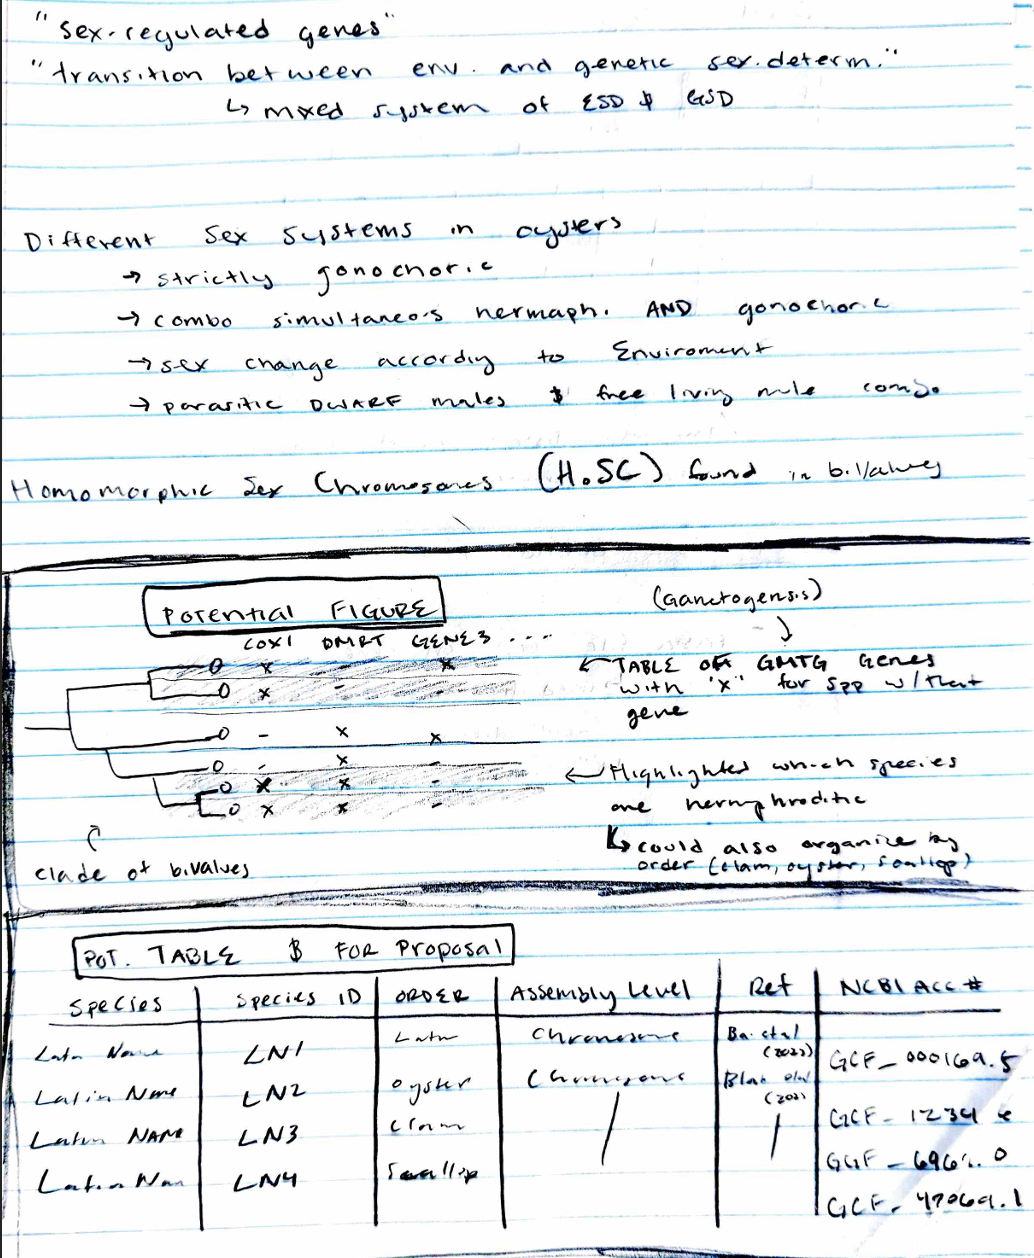 "sex-regulated genes"
"transition between env. and genetic sex.determ."
↳ mixed system of ESD & GSD
Different Sex Systems in oysters
→ strictly gonochoric
→ combo simultaneo.s hermaph. AND gonochoric
→ sex change accordiy to Enviroment
→ parasitic DWARF males & free living male combo
Homomorphic Sex Chromosomes (H.SC) found in bivalves
POTENTIAL FIGURE
(Gametogensis)
COX1 DMRT GENE3 ....
O x - x
O x -
O - x x
O - x -
O x x -
O x x -
← TABLE OF GMTG Genes
with "x" for spp w/that
gene
← Highlighted which species
are hermphroditic
↳ could also organize by
order (clam, oyster, scallop)
clade of bivalves
POT. TABLE & FOR Proposal
Species Species ID ORDER Assembly Level Ref NCBI Acc #
Latn Name LN1 Latn Chromosome (2022) GCF_000169.5
Latin Name LN2 oyster Chromosome GCF-1234
Latin NAME LN3 clam
Latin Nam LN4 Scallop GCF-47069.1